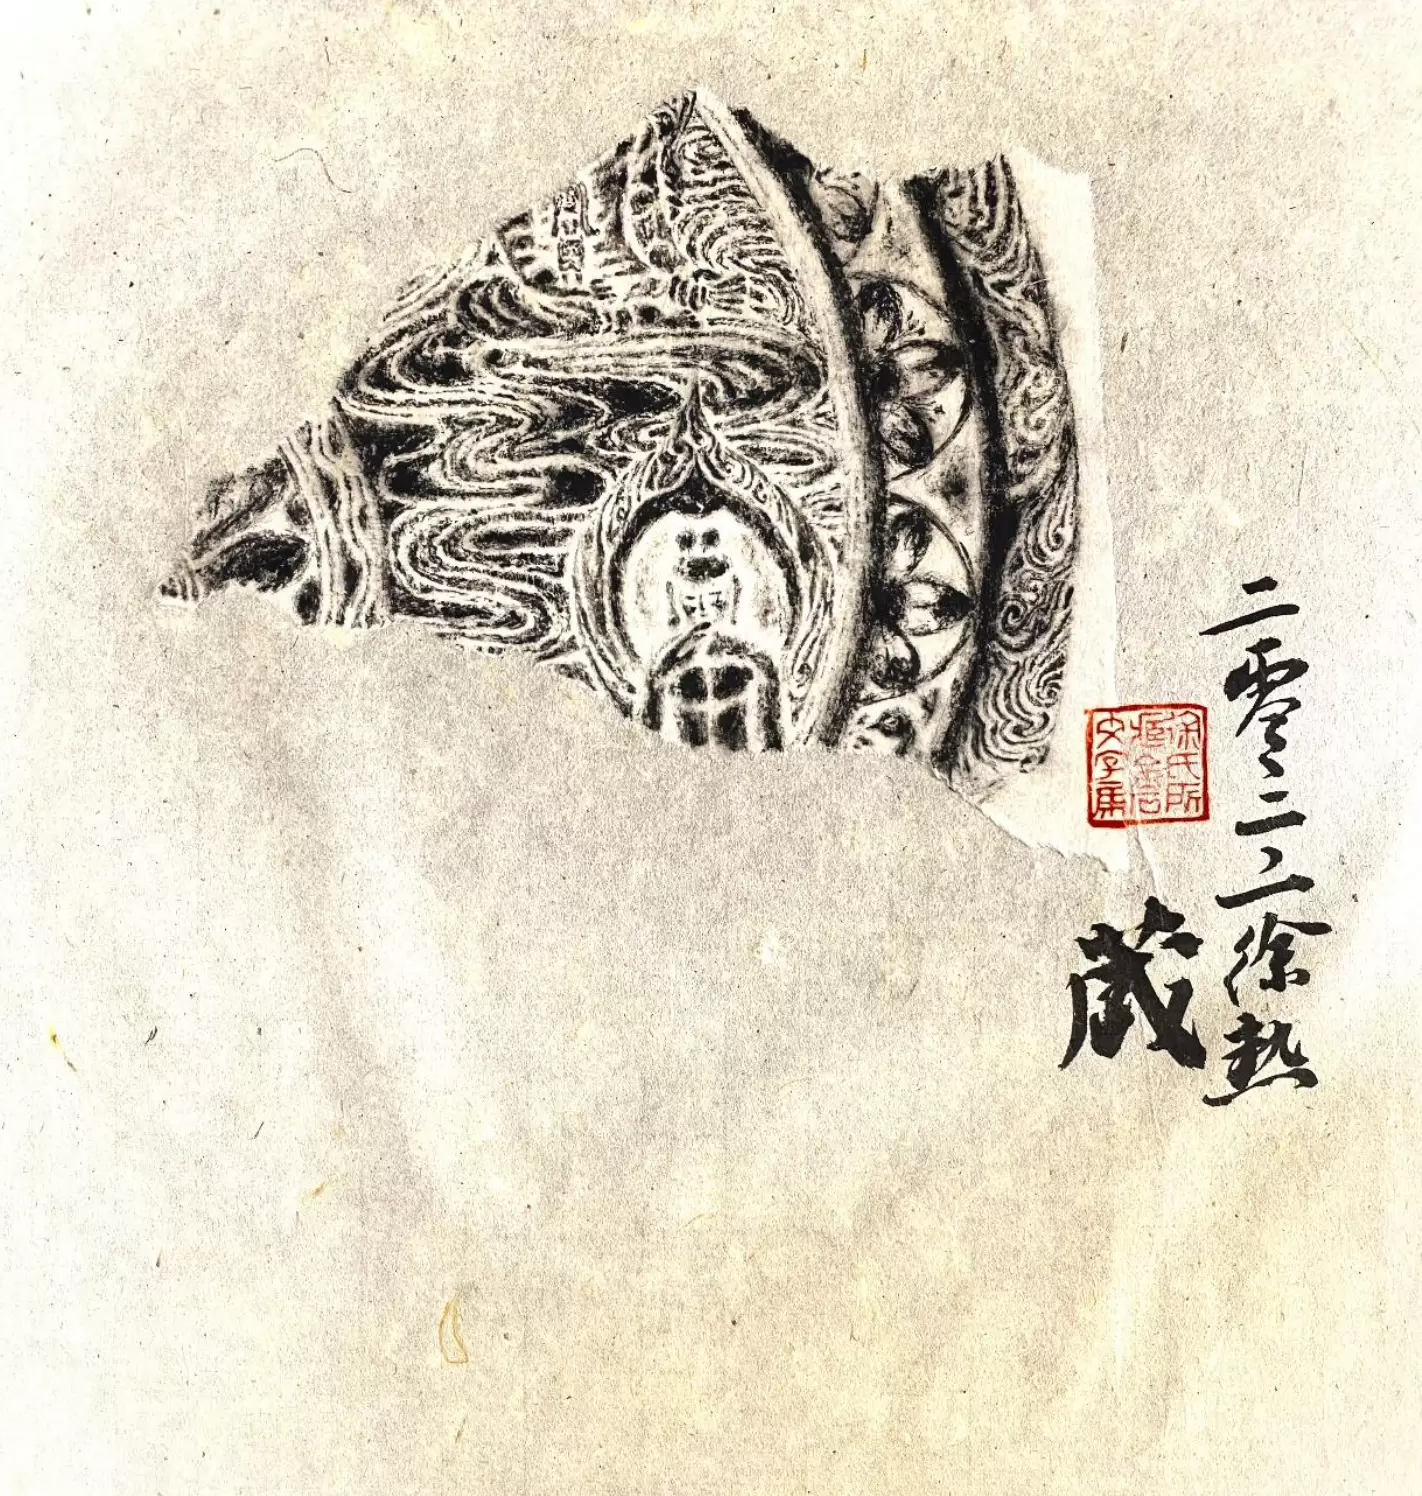 二零二二徐熱
藏
徐氏所
臧金石
文字